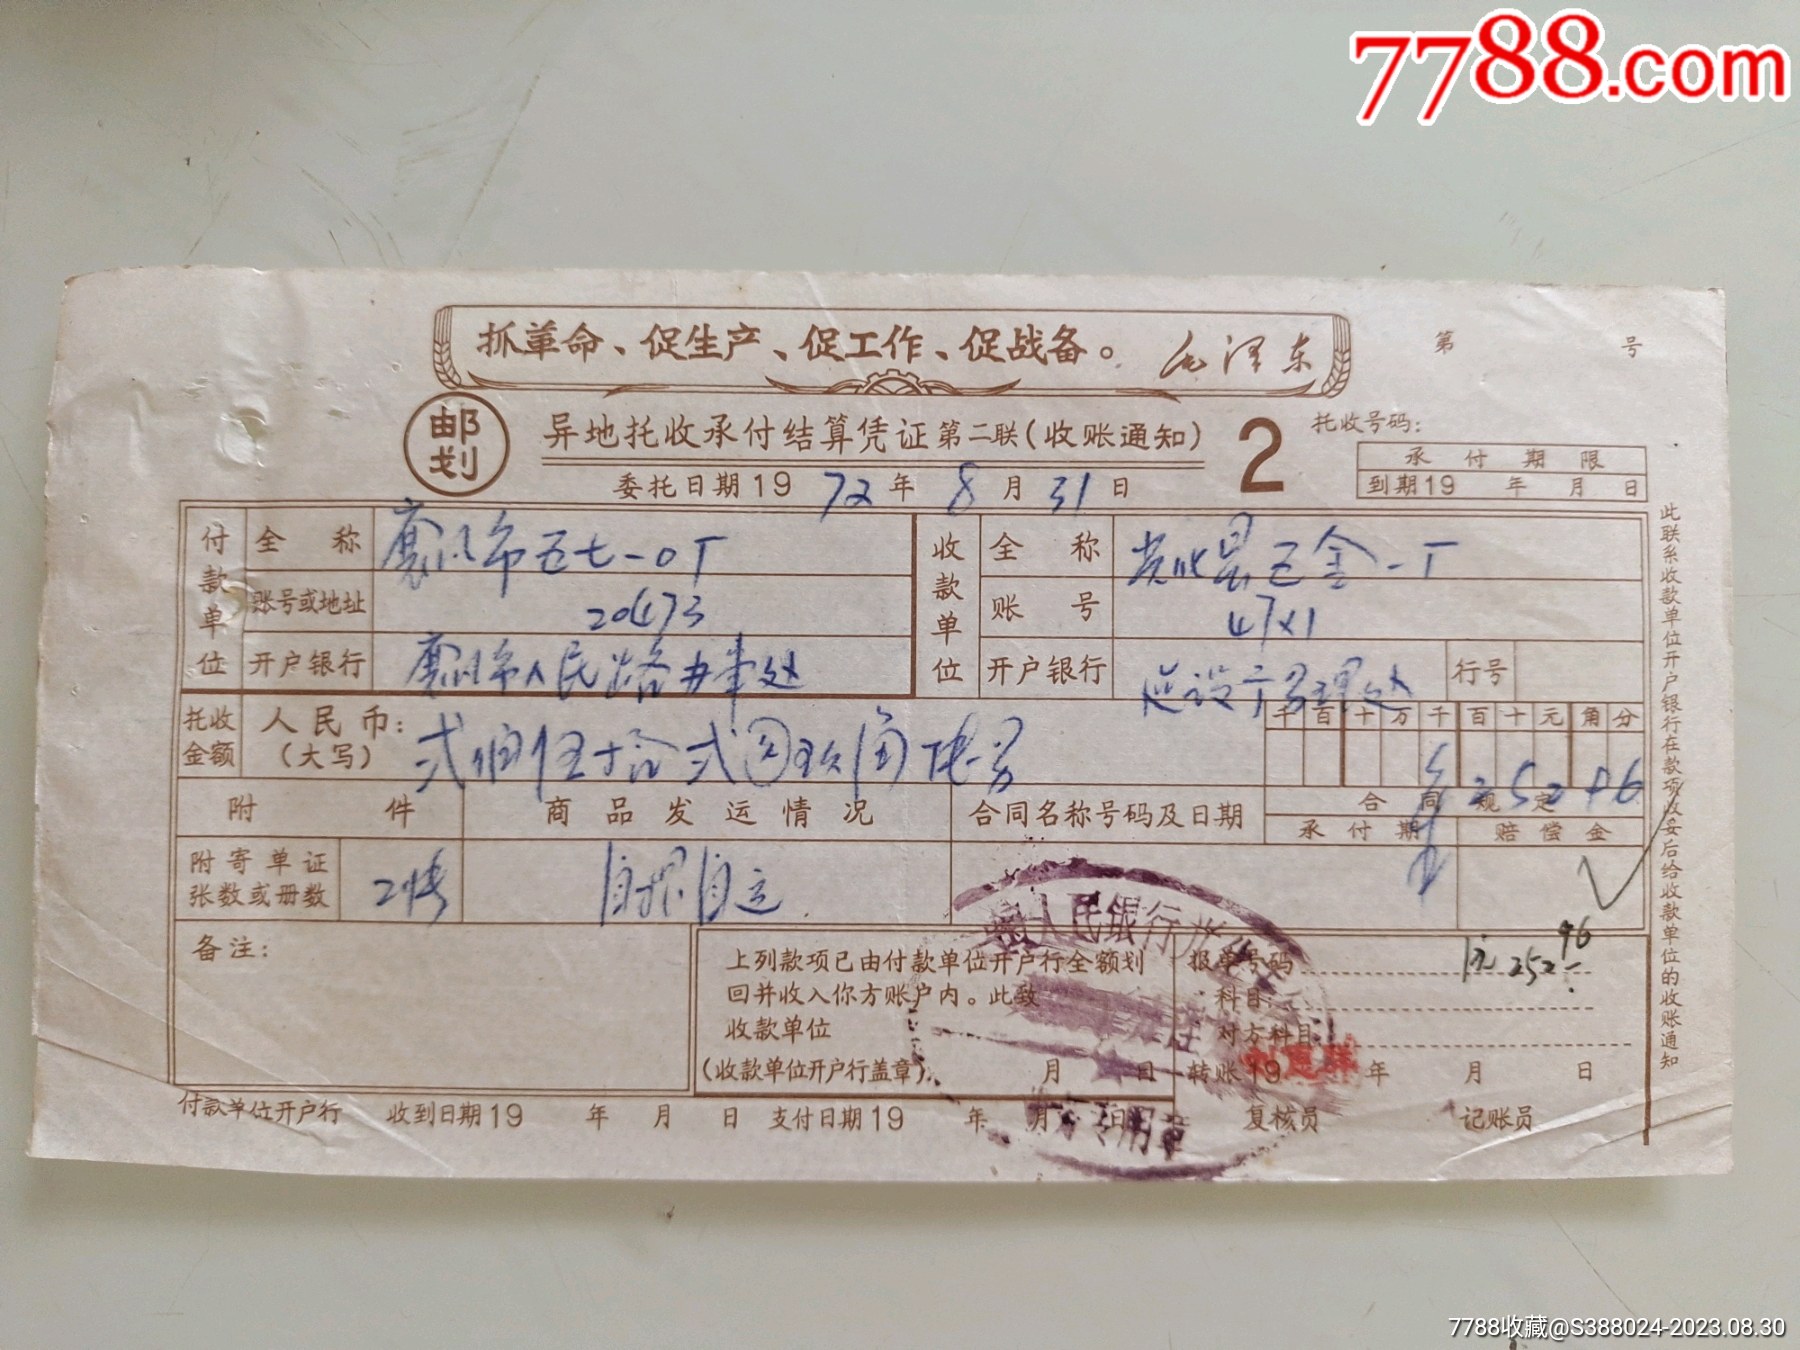 7788.com
抓革命、促生产、促工作、促战备。 毛泽东
第 号
邮划
异地托收承付结算凭证第二联(收账通知) 2
托收号码:
承付期限
到期19 年 月 日
委托日期19 72 年 8 月 31 日
付款单位 全称 市五七一0厂
收款单位 全称 县五金一厂
账号或地址 20473
账号 47×1
开户银行 市人民路办事处
开户银行 建设 处 行号
托收金额 人民币:(大写) 弍佰伍十 弍 玖角陆分
千百十万千百十元角分
2 5 2 9 6
附件 商品发运情况 合同名称号码及日期 合同规定
承付期 赔偿金
附寄单证张数或册数 2张 自提自运
备注:
上列款项已由付款单位开户行全额划
回并收入你方账户内。此致
收款单位
(收款单位开户行盖章) 月 日
报单号码
252.96
科目:
对方科目:
转账19 年 月 日
付款单位开户行 收到日期19 年 月 日 支付日期19 年 月 日 复核员 记账员
此联系收款单位开户银行在款项收妥后给收款单位的收账通知
人民银行
专用章
7788收藏@S388024-2023.08.30